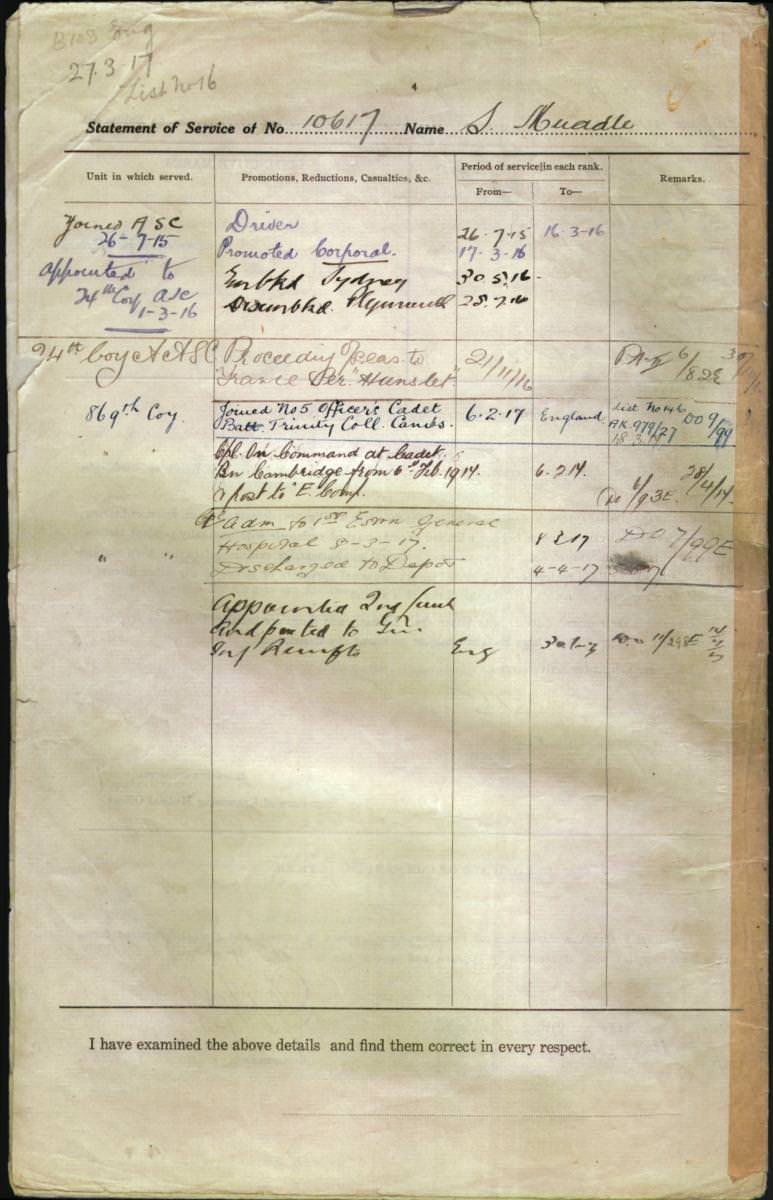 27.3.17
List No 16
4
Statement of Service of No. 10617 Name S. Muadle
Unit in which served.
Promotions, Reductions, Casualties, &c.
Period of service in each rank.
From—
To—
Remarks.
Joined ASC
26-7-15
Driver 26-7-15 16-3-16
Promoted Corporal. 17-3-16
Appointed to
24th Coy ASC
1-3-16
Embkd Sydney 30.5.16
Disembkd. 28.7.16
24th Coy AASC Proceeding O'Seas to
France Per "Hunslet" 21/11/16
6/82E
869th Coy. Joined No 5 Officer's Cadet
Batt. Trinity Coll. Cambs. 6.2.17 England.
List No 146
AK 979/27
18.3.17
DO 9/99
Cpl. On Command at Cadet
Bn Cambridge from 6th Feb. 1917.
& post to "E. Comp. 6.2.17.
6/93E 28/4/17
" "
Adm to 1st Estrn General
Hospital 8-3-17. 8 3 17 DO 7/99E
Discharged to Depot 4-4-17
Appointed 2nd Lieut
and posted to Gen.
Inf Reinfts Eng
I have examined the above details and find them correct in every respect.